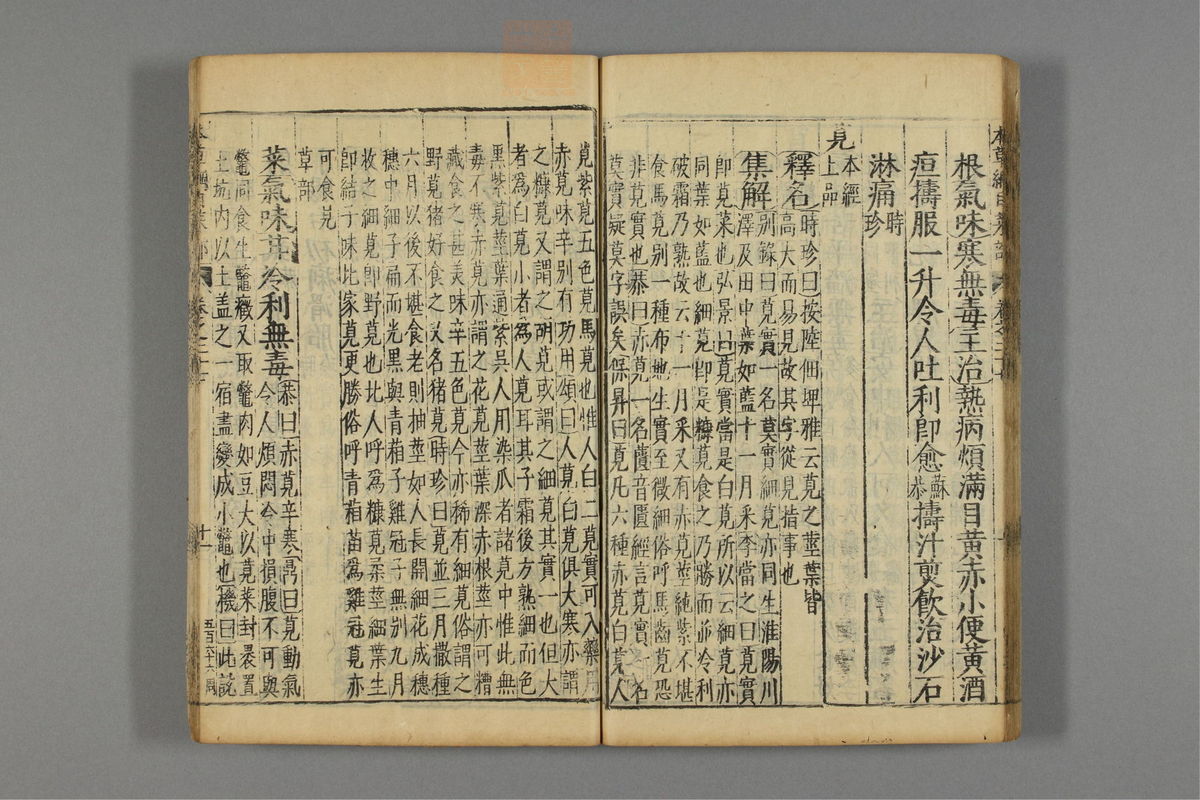 本草綱目菜部 卷之二十七
根氣味寒無毒主治熱病煩滿目黃赤小便黃酒
疸擣服一升令人吐利卽愈蘇恭擣汁煎飲治沙石
淋痛時珍
莧本經上品
釋名時珍曰按陸佃埤雅云莧之莖葉皆
高大而易見故其字從見指事也
集解別錄曰莧實一名莫實細莧亦同生淮陽川
澤及田中葉如藍十一月采李當之曰莧實
卽莧菜也弘景曰莧實當是白莧所以云細莧亦
同葉如藍也細莧卽是糠莧食之乃勝而並冷利
破霜乃熟故云十一月采又有赤莧莖純紫不堪
食馬莧別一種布地生實至微細俗呼馬齒莧恐
非莧實也恭曰赤莧一名蕢音匱經言莧實一名
莫實疑莫字誤矣保昇曰莧凡六種赤莧白莧人
莧紫莧五色莧馬莧也惟人白二莧實可入藥用
赤莧味辛別有功用頌曰人莧白莧俱大寒亦謂
之糠莧又謂之胡莧或謂之細莧其實一也但大
者為白莧小者為人莧耳其子霜後方熟細而色
黑紫莧莖葉通紫吳人用染瓜者諸莧中惟此無
毒不寒赤莧亦謂之花莧莖葉深赤根莖亦可糟
藏食之甚美味辛五色莧今亦稀有細莧俗謂之
野莧猪好食之又名猪莧時珍曰莧並三月撒種
六月以後不堪食老則抽莖如人長開細花成穗
穗中細子扁而光黑與青葙子雞冠子無別九月
收之細莧卽野莧也北人呼為糠莧柔莖細葉生
卽結子味比家莧更勝俗呼青葙苗為雞冠莧亦
可食莧
草部
菜氣味甘冷利無毒恭曰赤莧辛寒鼎曰莧動氣
令人煩悶冷中損腹不可與
鼈同食生鼈癥又取鼈肉如豆大以莧菜封裹置
土坑內以土盖之一宿盡變成小鼈也機曰此說
本草綱目菜部 卷之二十七 十一 五百六十六